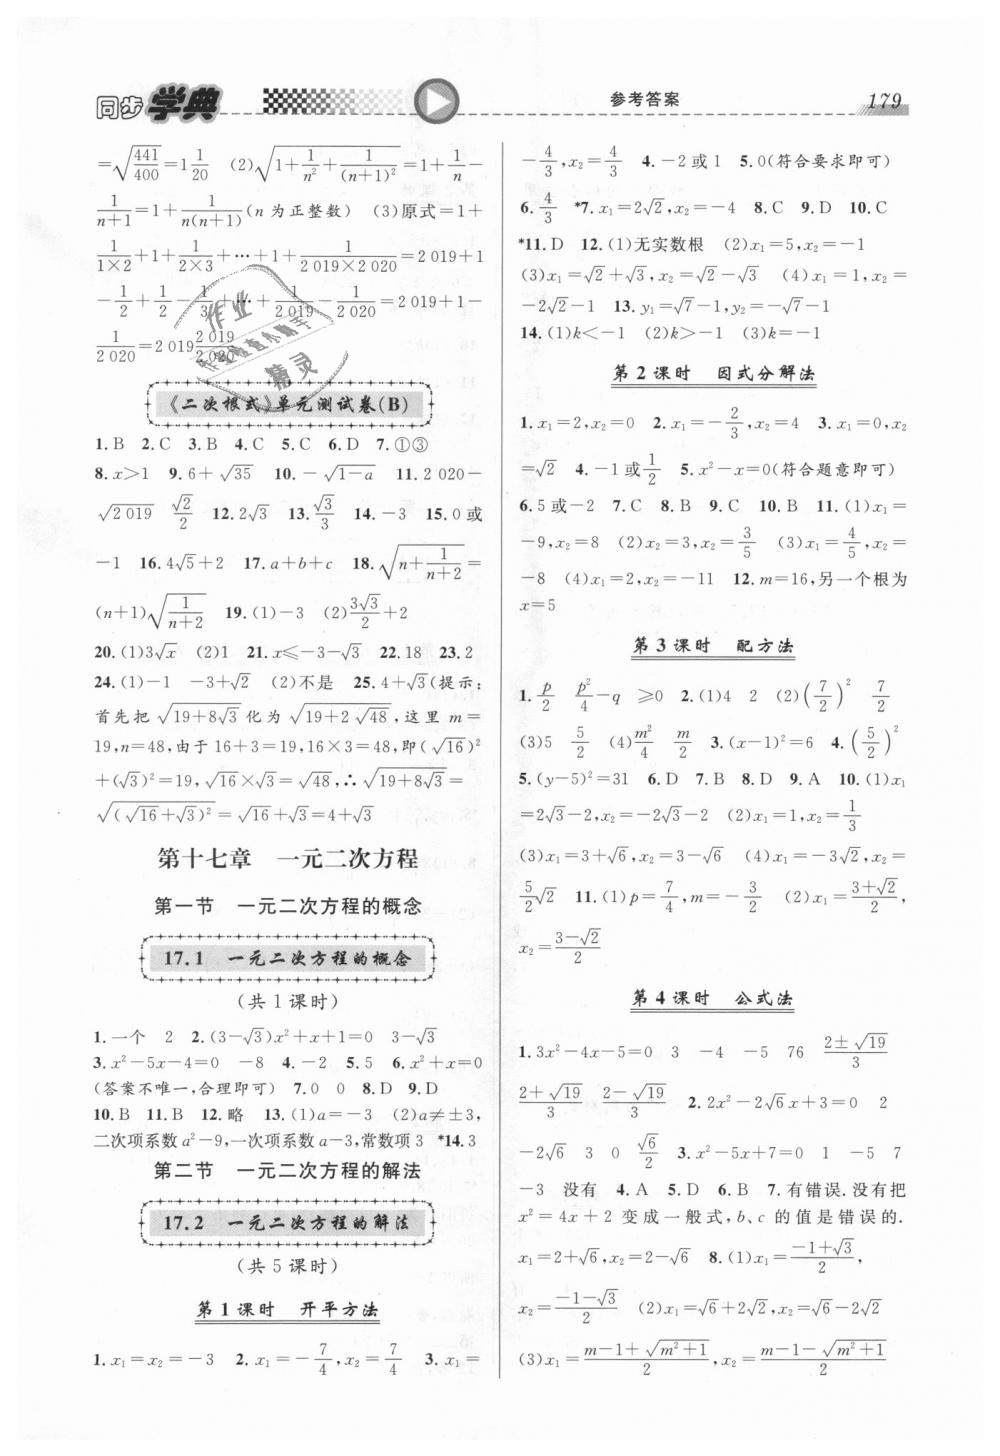 同步学典
参考答案
179
=√(441/400)=1 1/20 (2)√(1+1/n²+1/(n+1)²)=1+1/n-
1/(n+1)=1+1/(n(n+1))(n 为正整数) (3)原式=1+
1/(1×2)+1+1/(2×3)+…+1+1/(2 019×2 020)=2 019+1
-1/2+1/2-1/3+…+1/2019-1/2020=2 019+1-
1/2 020=2 019 2 019/2 020
《二次根式》单元测试卷(B)
1.B 2.C 3.B 4.C 5.C 6.D 7.①③
8.x>1 9.6+√35 10.-√(1-a) 11.2 020-
√2 019 √2/2 12.2√3 13.√3/3 14.-3 15.0 或
-1 16.4√5+2 17.a+b+c 18.√(n+1/(n+2))=
(n+1)√(1/(n+2)) 19.(1)-3 (2)3√3/2+2
20.(1)3√x (2)1 21.x≤-3-√3 22.18 23.2
24.(1)-1 -3+√2 (2)不是 25.4+√3(提示:
首先把 √(19+8√3) 化为 √(19+2√48),这里 m=
19,n=48,由于 16+3=19,16×3=48,即(√16)²
+(√3)²=19,√16×√3=√48,∴√(19+8√3)=
√((√16+√3)²)=√16+√3=4+√3
第十七章 一元二次方程
第一节 一元二次方程的概念
17.1 一元二次方程的概念
(共 1 课时)
1.一个 2 2.(3-√3)x²+x+1=0 3-√3
3.x²-5x-4=0 -8 4.-2 5.5 6.x²+x=0
(答案不唯一,合理即可) 7.0 0 8.D 9.D
10.B 11.B 12.略 13.(1)a=-3 (2)a≠±3,
二次项系数 a²-9,一次项系数 a-3,常数项 3 *14.3
第二节 一元二次方程的解法
17.2 一元二次方程的解法
(共 5 课时)
第 1 课时 开平方法
1.x₁=x₂=-3 2.x₁=-7/4,x₂=7/4 3.x₁=
-4/3,x₂=4/3 4.-2或1 5.0(符合要求即可)
6.4/3 *7.x₁=2√2,x₂=-4 8.C 9.D 10.C
*11.D 12.(1)无实数根 (2)x₁=5,x₂=-1
(3)x₁=√2+√3,x₂=√2-√3 (4)x₁=1,x₂=
-2√2-1 13.y₁=√7-1,y₂=-√7-1
14.(1)k<-1 (2)k>-1 (3)k=-1
第 2 课时 因式分解法
1.x₁=2,x₂=0 2.x₁=-2/3,x₂=4 3.x₁=0,x₂
=√2 4.-1或1/2 5.x²-x=0(符合题意即可)
6.5或-2 7.C 8.B 9.C 10.B 11.(1)x₁=
-9,x₂=8 (2)x₁=3,x₂=3/5 (3)x₁=4/5,x₂=
-8 (4)x₁=2,x₂=-11 12.m=16,另一个根为
x=5
第 3 课时 配方法
1.p/2 p²/4-q ≥0 2.(1)4 2 (2)(7/2)² 7/2
(3)5 5/2 (4)m²/4 m/2 3.(x-1)²=6 4.(5/2)²
5.(y-5)²=31 6.D 7.B 8.D 9.A 10.(1)x₁
=2√3-2,x₂=-2√3-2 (2)x₁=1,x₂=1/3
(3)x₁=3+√6,x₂=3-√6 (4)x₁=-3√2,x₂=
5/2√2 11.(1)p=7/4,m=-3/2 (2)x₁=(3+√2)/2,
x₂=(3-√2)/2
第 4 课时 公式法
1.3x²-4x-5=0 3 -4 -5 76 (2±√19)/3
(2+√19)/3 (2-√19)/3 2.2x²-2√6x+3=0 2
-2√6 3 0 √6/2 3.x²-5x+7=0 1 -5 7
-3 没有 4.A 5.D 6.B 7.有错误.没有把
x²=4x+2 变成一般式,b、c 的值是错误的.
x₁=2+√6,x₂=2-√6 8.(1)x₁=(-1+√3)/2,
x₂=(-1-√3)/2 (2)x₁=√6+2√2,x₂=√6-2√2
(3)x₁=(m-1+√(m²+1))/2,x₂=(m-1-√(m²+1))/2
作业
作业检查小助手
精灵